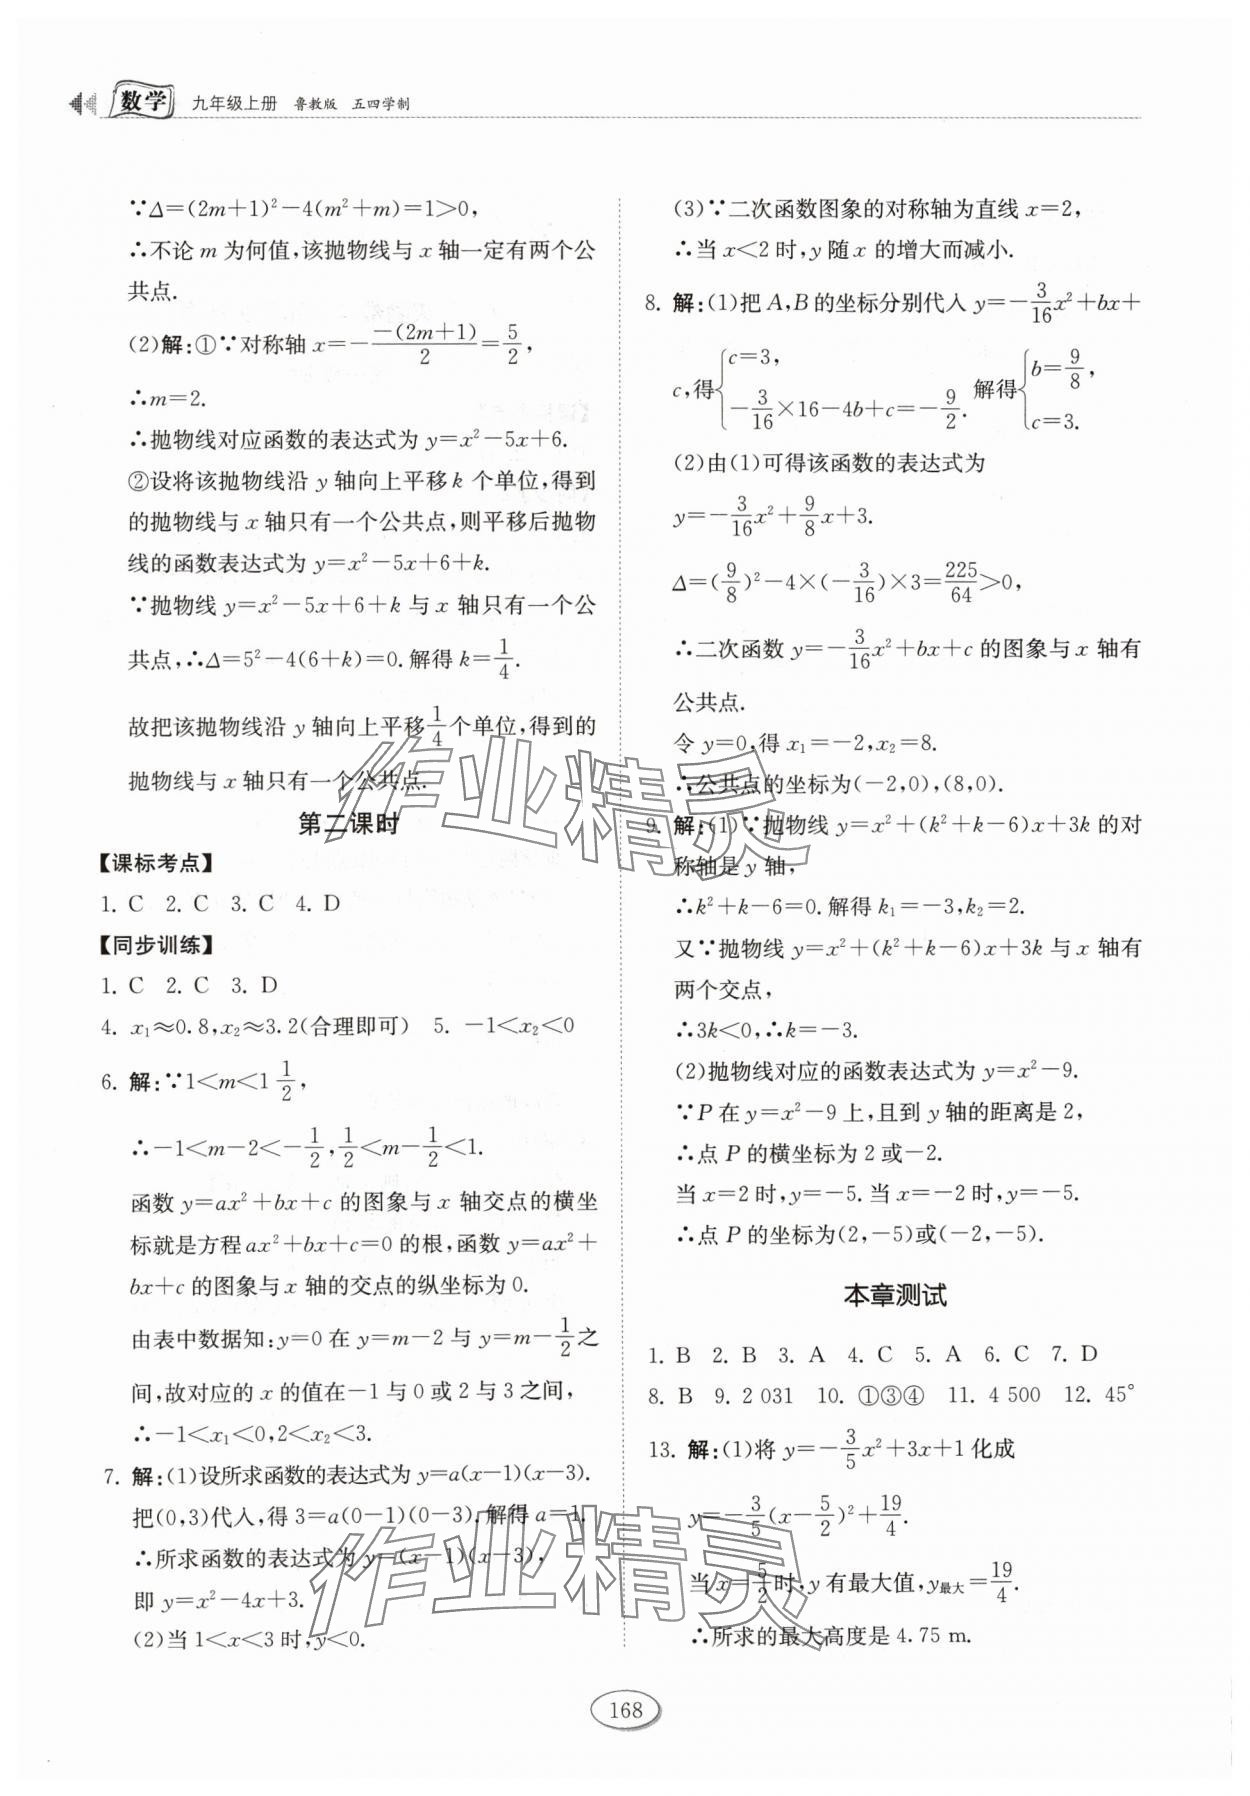 数学 九年级上册 鲁教版 五四学制
∵Δ=(2m+1)²-4(m²+m)=1>0,
∴不论 m 为何值,该抛物线与 x 轴一定有两个公
共点.
(2)解:①∵对称轴 x=-\frac{-(2m+1)}{2}=\frac{5}{2},
∴m=2.
∴抛物线对应函数的表达式为 y=x²-5x+6.
②设将该抛物线沿 y 轴向上平移 k 个单位,得到
的抛物线与 x 轴只有一个公共点,则平移后抛物
线的函数表达式为 y=x²-5x+6+k.
∵抛物线 y=x²-5x+6+k 与 x 轴只有一个公
共点,∴Δ=5²-4(6+k)=0.解得 k=\frac{1}{4}.
故把该抛物线沿 y 轴向上平移\frac{1}{4}个单位,得到的
抛物线与 x 轴只有一个公共点.
第二课时
【课标考点】
1. C 2. C 3. C 4. D
【同步训练】
1. C 2. C 3. D
4. x₁≈0.8,x₂≈3.2(合理即可) 5. -1<x₂<0
6. 解:∵1<m<1\frac{1}{2},
∴-1<m-2<-\frac{1}{2},\frac{1}{2}<m-\frac{1}{2}<1.
函数 y=ax²+bx+c 的图象与 x 轴交点的横坐
标就是方程 ax²+bx+c=0 的根,函数 y=ax²+
bx+c 的图象与 x 轴的交点的纵坐标为 0.
由表中数据知:y=0 在 y=m-2 与 y=m-\frac{1}{2}之
间,故对应的 x 的值在-1 与 0 或 2 与 3 之间,
∴-1<x₁<0,2<x₂<3.
7. 解:(1)设所求函数的表达式为 y=a(x-1)(x-3).
把(0,3)代入,得 3=a(0-1)(0-3).解得 a=1.
∴所求函数的表达式为 y=(x-1)(x-3),
即 y=x²-4x+3.
(2)当 1<x<3 时,y<0.
(3)∵二次函数图象的对称轴为直线 x=2,
∴当 x<2 时,y 随 x 的增大而减小.
8. 解:(1)把 A,B 的坐标分别代入 y=-\frac{3}{16}x²+bx+
c,得{c=3, -\frac{3}{16}×16-4b+c=-\frac{9}{2}. 解得{b=\frac{9}{8}, c=3.
(2)由(1)可得该函数的表达式为
y=-\frac{3}{16}x²+\frac{9}{8}x+3.
Δ=(\frac{9}{8})²-4×(-\frac{3}{16})×3=\frac{225}{64}>0,
∴二次函数 y=-\frac{3}{16}x²+bx+c 的图象与 x 轴有
公共点.
令 y=0,得 x₁=-2,x₂=8.
∴公共点的坐标为(-2,0),(8,0).
9. 解:(1)∵抛物线 y=x²+(k²+k-6)x+3k 的对
称轴是 y 轴,
∴k²+k-6=0.解得 k₁=-3,k₂=2.
又∵抛物线 y=x²+(k²+k-6)x+3k 与 x 轴有
两个交点,
∴3k<0,∴k=-3.
(2)抛物线对应的函数表达式为 y=x²-9.
∵P 在 y=x²-9 上,且到 y 轴的距离是 2,
∴点 P 的横坐标为 2 或-2.
当 x=2 时,y=-5.当 x=-2 时,y=-5.
∴点 P 的坐标为(2,-5)或(-2,-5).
本章测试
1. B 2. B 3. A 4. C 5. A 6. C 7. D
8. B 9. 2 031 10. ①③④ 11. 4 500 12. 45°
13. 解:(1)将 y=-\frac{3}{5}x²+3x+1 化成
y=-\frac{3}{5}(x-\frac{5}{2})²+\frac{19}{4}.
当 x=\frac{5}{2}时,y 有最大值,y最大=\frac{19}{4}.
∴所求的最大高度是 4.75 m.
作业精灵
作业精灵
168